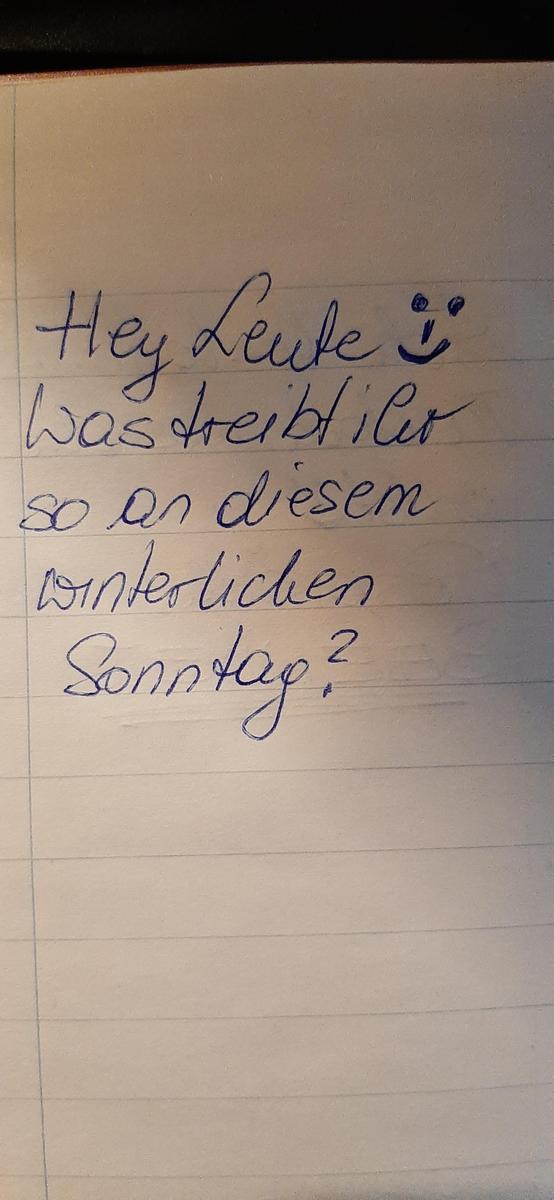 Hey Leute
Was treibt ihr
so an diesem
winterlichen
Sonntag?